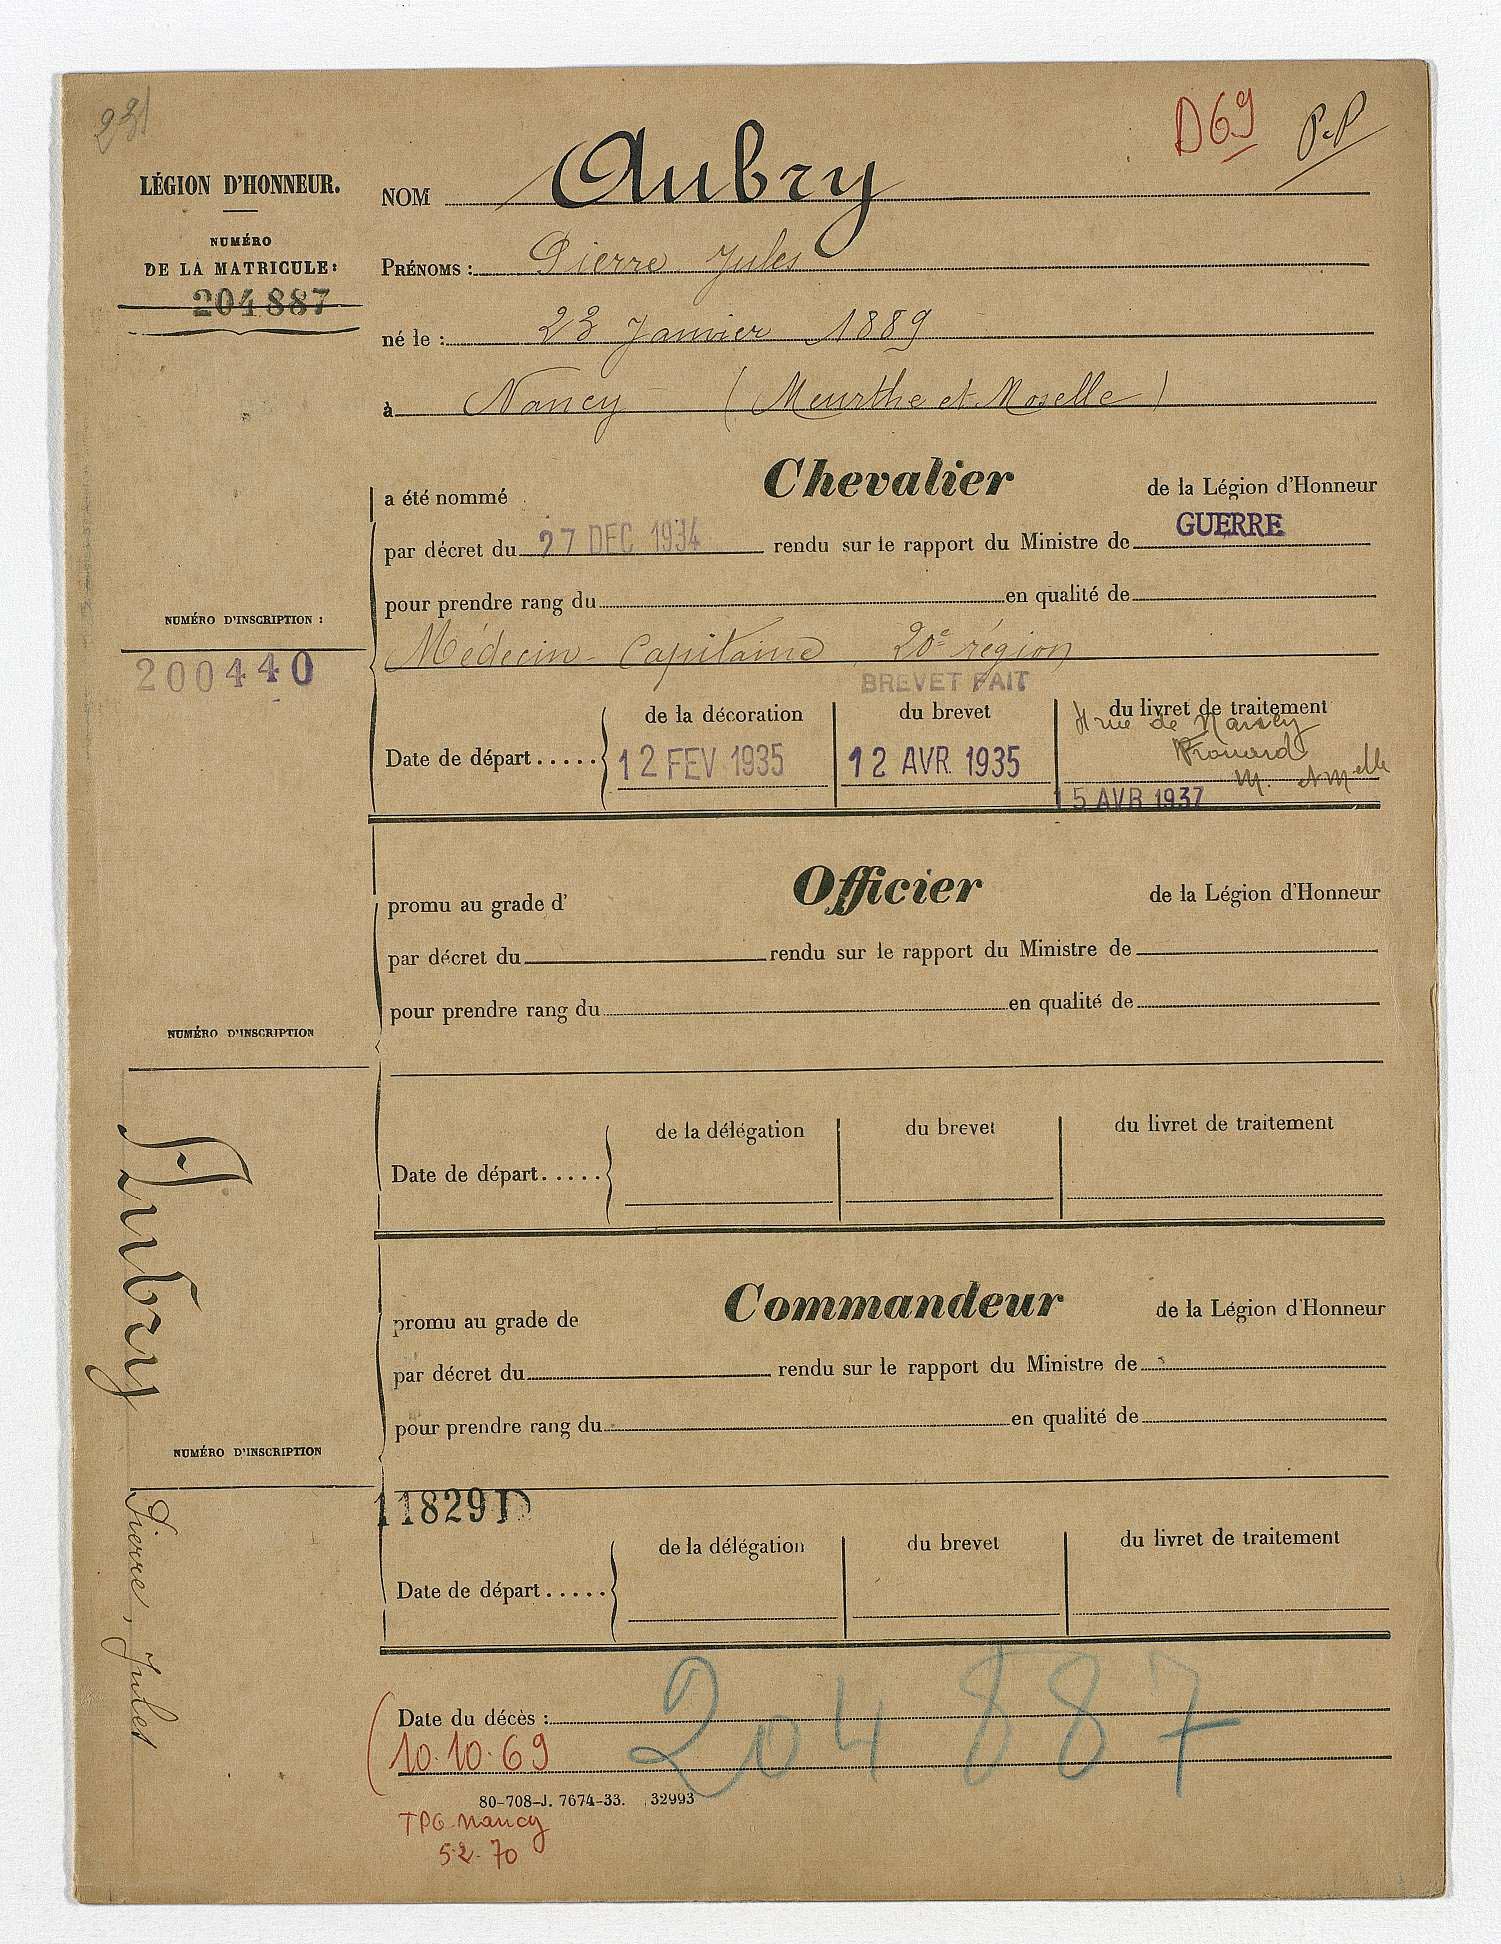 231
D69 P.P
LÉGION D'HONNEUR.
NUMÉRO
DE LA MATRICULE:
204887
NOM Aubry
PRÉNOMS: Pierre Jules
né le : 23 Janvier 1889
à Nancy (Meurthe et Moselle)
a été nommé Chevalier de la Légion d'Honneur
par décret du 27 DEC 1934 rendu sur le rapport du Ministre de GUERRE
pour prendre rang du en qualité de
Médecin-Capitaine, 20e région
NUMÉRO D'INSCRIPTION :
200440
BREVET FAIT
Date de départ..... de la décoration du brevet du livret de traitement
rue de Nancy
Frouard
M. et Melle
12 FEV 1935 12 AVR. 1935
15 AVR 1937
promu au grade d' Officier de la Légion d'Honneur
par décret du rendu sur le rapport du Ministre de
pour prendre rang du en qualité de
NUMÉRO D'INSCRIPTION
de la délégation du brevet du livret de traitement
Date de départ.....
Aubry
Pierre, Jules
promu au grade de Commandeur de la Légion d'Honneur
par décret du rendu sur le rapport du Ministre de
pour prendre rang du en qualité de
NUMÉRO D'INSCRIPTION
11829D
de la délégation du brevet du livret de traitement
Date de départ.....
204887
Date du décès :
10.10.69
80-708-J. 7674-33. 32993
TPG Nancy
5.2.70